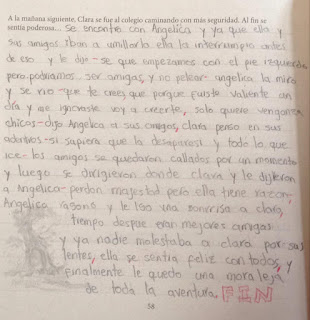 A la mañana siguiente, Clara se fue al colegio caminando con más seguridad. Al fin se
sentía poderosa... se encontro con Angelica y ya que ella y
sus amigos iban a umillarla ella la interrumpio antes
de eso y le dijo - se que empezamos con el pie izquierdo
pero podriamos ser amigas, y no pelear - angelica la miro
y se rio - que te crees que porque fuiste valiente un
dia y me ignoraste voy a creerte, solo quiere venganza
chicos - dijo Angelica a sus amigos, clara penso en sus
adentros - si supiera que la desaparesi y todo lo que
ice - los amigos se quedaron callados por un momento
y luego se dirigieron donde clara y le dijieron
a Angelica - perdon majestad pero ella tiene razon -
Angelica rasono y le dio una sonrrisa a clara,
tiempo despue eran mejores amigas
y ya nadie molestaba a clara por sus
lentes, ella se sentia feliz con todos, y
finalmente le quedo una moraleja
de toda la aventura. FIN
58